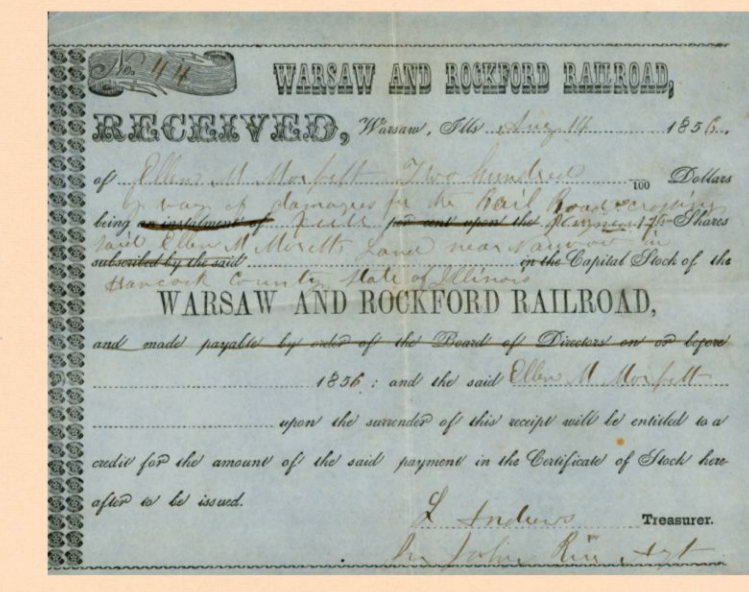 No. 44
WARSAW AND ROCKFORD RAILROAD,
RECEIVED, Warsaw, Ills Aug 14 1856.
of Ellen M Morfett Two hundred 100 Dollars
by way of damages for the Rail Road crossing
being an instalment of full per cent upon the Shares
said Ellen M Land near in
subscribed by the said in the Capital Stock of the
Hancock County State of Illinois
WARSAW AND ROCKFORD RAILROAD,
and made payable by order of the Board of Directors on or before
1856: and the said Ellen M Morfett
upon the surrender of this receipt will be entitled to a
credit for the amount of the said payment in the Certificate of Stock here-
after to be issued.
L Andrews Treasurer.
John Agt